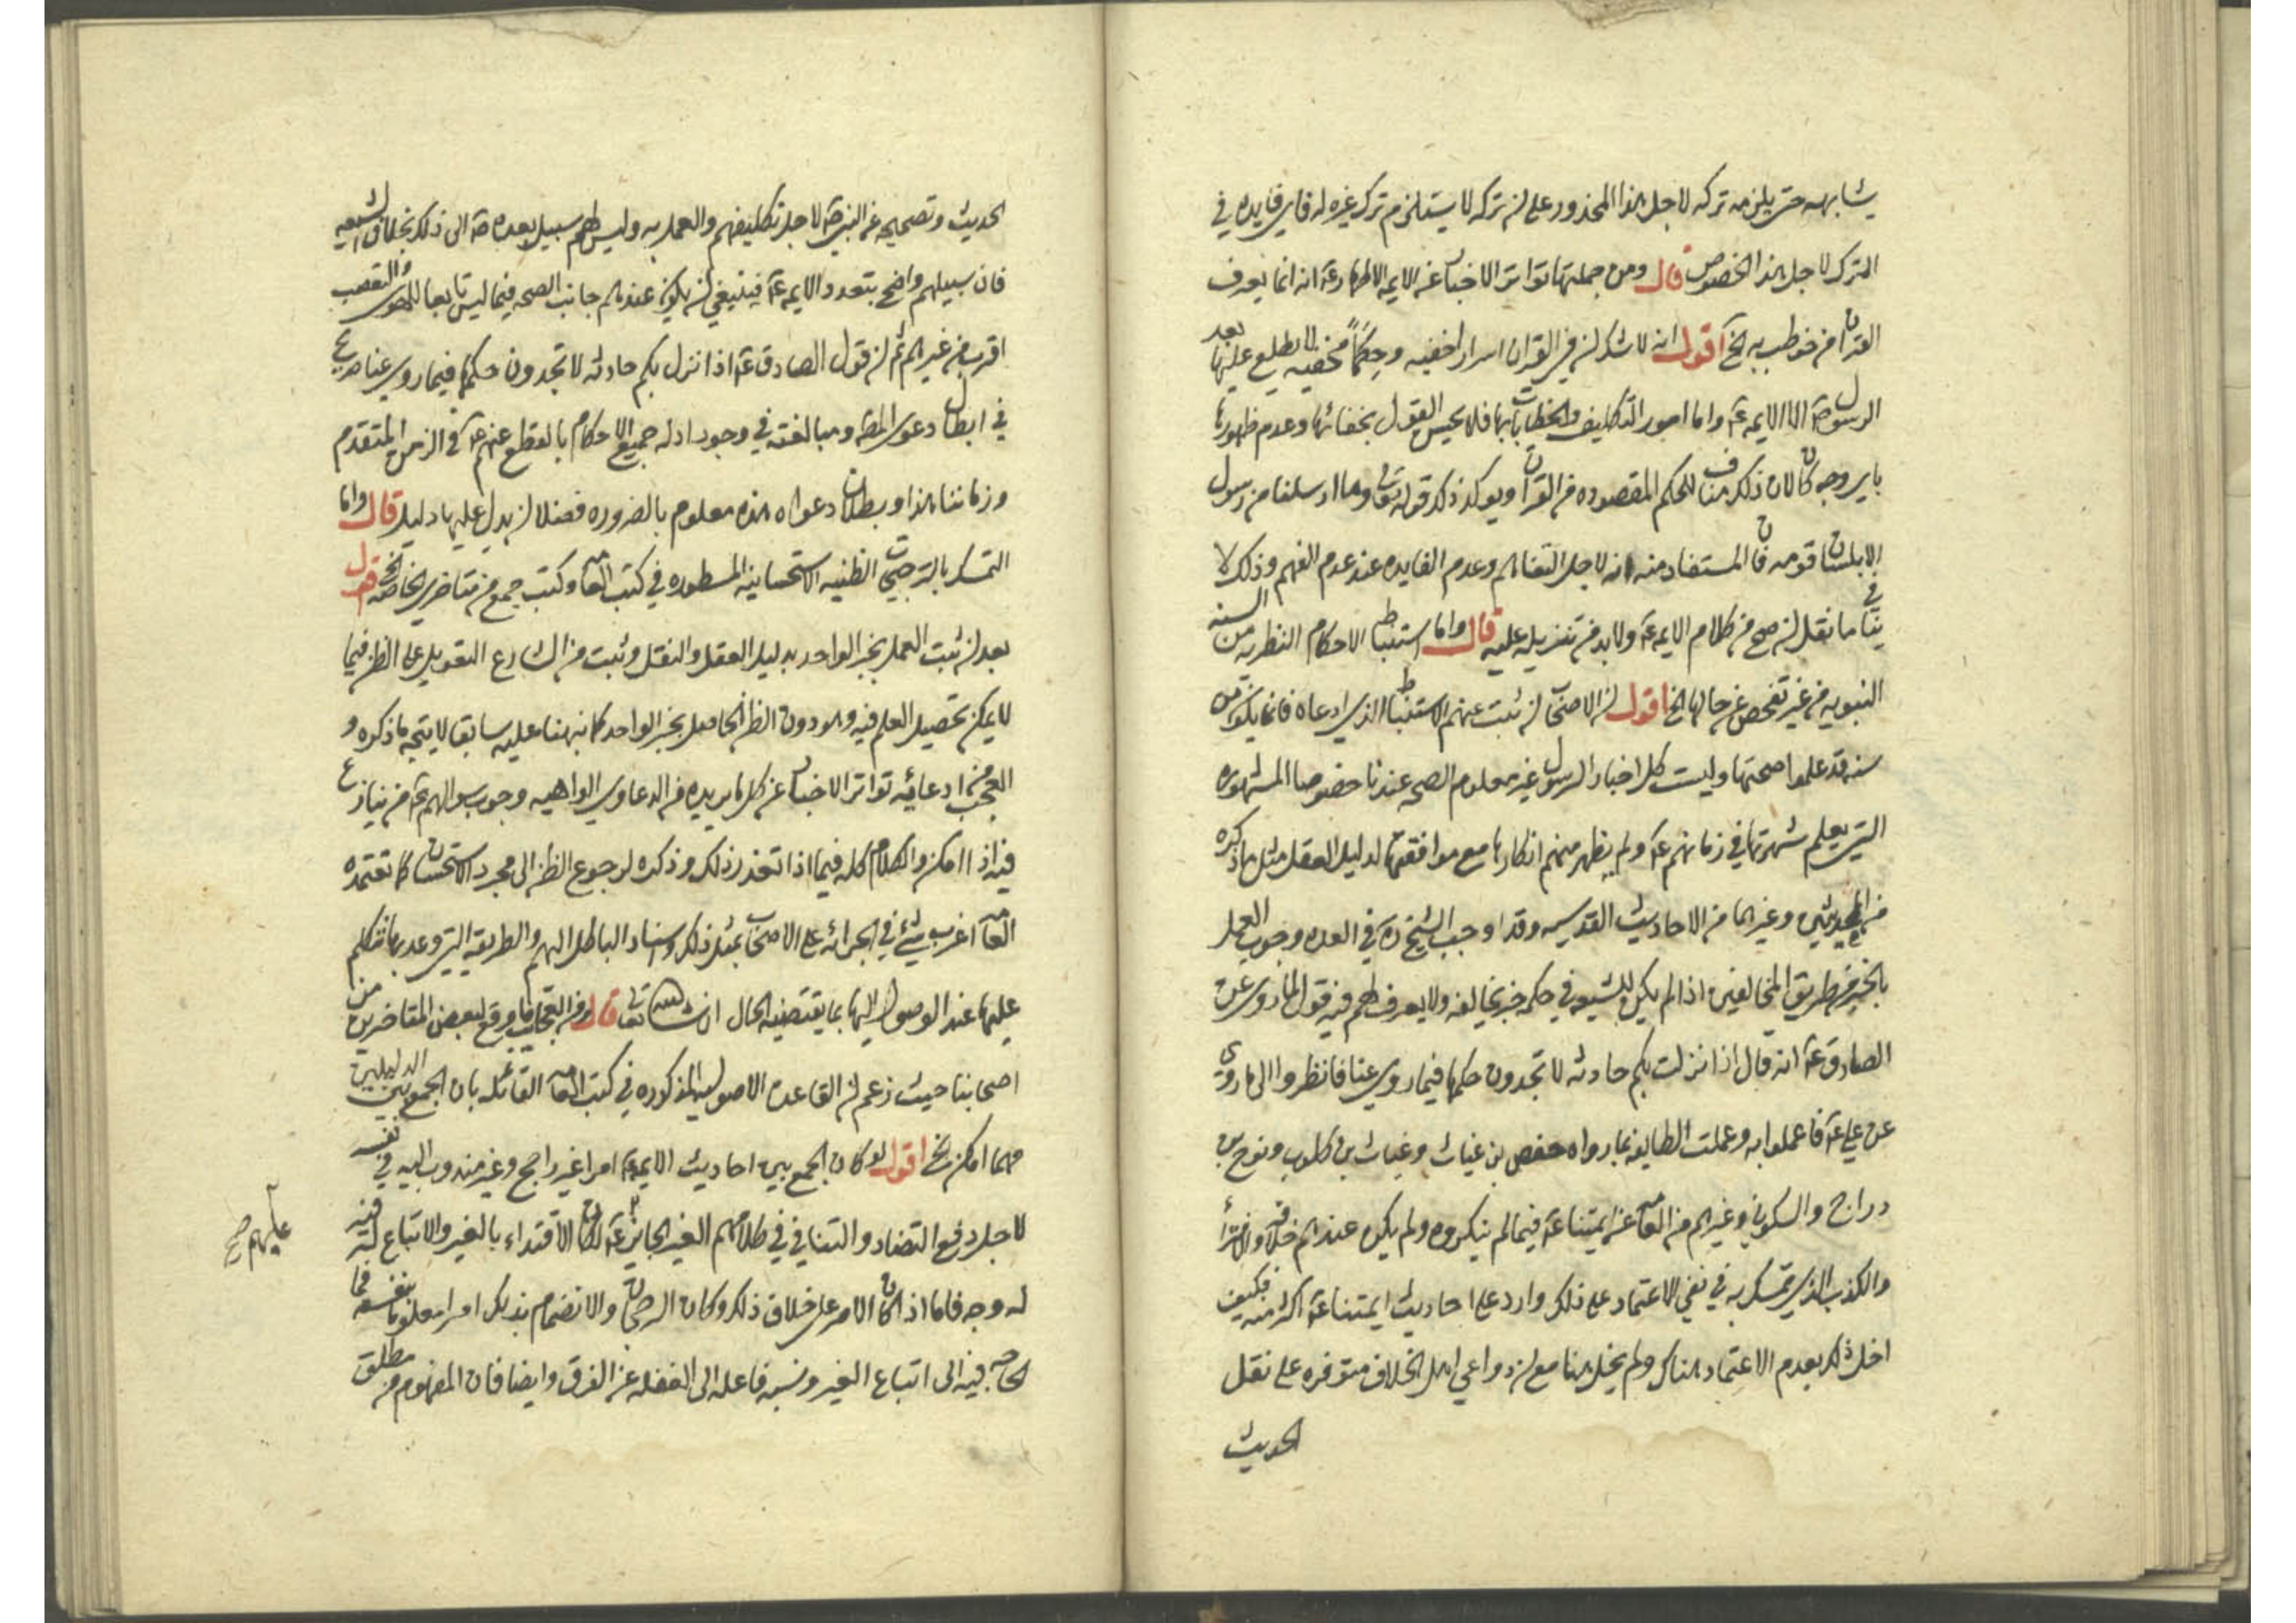 يشابهه حتى يلزمه تركه لاجل هذا المحذور على ان تركه لا يستلزم ترك غيره له فاى فايده في
الترك لاجل هذا الخصوص قال ومن جملتها تواتر الاخبار عن الايمه الاطهار عه انه انما يعرف
القران من خوطب به الخ اقول انه لا شك ان في القران اسرار اخفيه وحكماً مخفيه لا يطلع عليها بعد
الرسول صه الا الايمه عه واما امور التكاليف والخطابات بها فلا يحسن القول بخفائها وعدم ظهورها
باى وجه كان لان ذلك مناف للحكم المقصوده من القران ويوكد ذلك قوله تعالى وما ارسلنا من رسول
الا بلسان قومه فان المستفاد منه انه لاجل التفاهم وعدم الفايده عند عدم الفهم وذلك لا
ينافي ما نقل ان صح من كلام الايمه عه ولا بد من تنزيله عليه قال واما استنباط الاحكام النظريه من السنه
النبويه من غير تفحص عن حالها الخ اقول ان الاصحاب ان ثبت عنهم الاستنباط الذى ادعاه فانما يكون من
سنه قد علموا صحتها وليست كل اخبار الرسول غير معلوم الصحه عندنا خصوصا المشهوره
التى يعلم شهرتها في زمانهم عه ولم يظهر منهم انكارها مع موافقتها لدليل العقل مثل ما ذكره
من الحديثين وغيرهما من الاحاديث القدسيه وقد اوجب الشيخ ره في العده وجوب العمل
بالخبر من طريق المخالفين اذا لم يكن للشيعه في حكمه خبر يخالفه ولا يعرف لهم فيه قول لما روى عن
الصادق عه انه قال اذا نزلت بكم حادثه لا تجدون حكمها فيما روى عنا فانظروا الى ما روى
عن على عه فاعملوا به وعملت الطايفه بما رواه حفص بن غياث وغياث بن كلوب ونوح بن
دراج والسكونى وغيرهم من العامه عن ايمتنا عه فيما لم ينكروه ولم يكن عندهم خلافه والافتراء
والكذب الذى تمسك به في نفى الاعتماد على ذلك وارد على احاديث ايمتنا عه اكثر منه فكيف
اخل ذلك بعدم الاعتماد هناك ولم يخل هنا مع ان دواعى اهل الخلاف متوفره على نقل
الحديث
الحديث وتصحيحه عن النبى صه لاجل تكليفهم والعمل به وليس لهم سبيل بعده صه الى ذلك بخلاف الشيعه
فان سبيلهم واضح بتعدد الايمه عه فينبغى ان يكون عندهم جانب الصحه فيما ليس تابعا للهوى والتعصب
اقرب من غيرهم ثم ان قول الصادق عه اذا نزل بكم حادثه لا تجدون حكمها فيما روى عنا صريح
في ابطال دعوى المصه ومبالغته في وجود ادله جميع الاحكام بالقطع عنهم عه في الزمن المتقدم
وزماننا هذا وبطلان دعواه هذه معلوم بالضروره فضلا ان يدل عليها دليل قال واما
التمسك بالترجيحات الظنيه الاستحسانيه المسطوره في كتب العامه وكتب جمع من متاخرى الخاصه الخ اقول
بعد ان ثبت العمل بخبر الواحد بدليل العقل والنقل وثبت من الشارع التعويل على الظن فيما
لا يمكن تحصيل العلم فيه وهو دون الظن الحاصل بخبر الواحد كما نبهنا عليه سابقا لا يتجه ما ذكره و
العجب من ادعائه تواتر الاخبار عن كل ما يريده من الدعاوى الواهيه وجوب سوالهم عه من ينازع
فيه اذا امكن والكلام كله فيما اذا تعذر ذلك وذكره لرجوع الظن الى مجرد الاستحسان كما تعتمده
العامه اغرب شئ في الجرائه على الاصحاب بمثل ذلك واسناد الباطل اليهم والطريقه التى وعد بها نتكلم
عليها عند الوصول اليها بما يقتضيه الحال ان شاء الله تعالى قال ومن العجايب ما وقع لبعض المتاخرين من
اصحابنا حيث زعم ان القاعده الاصوليه المذكوره في كتب العامه القائله بان الجمع بين الدليلين
مهما امكن الخ اقول لو كان الجمع بين احاديث الايمه عه امرا غير راجح وغير مندوب اليه في نفسه
لاجل دفع التضاد والتنافى في كلامهم الغير الجايز عه لكان الاقتداء بالغير والاتباع له فيه
له وجه فاما اذا كان الامر على خلاف ذلك وكان الرجحان والانضمام بذلك امرا معلوما بنفسه فما
الحاجه فيه الى اتباع الغير ونسبه فاعله الى الغفله عن الفرق وايضا فان المفهوم من مطلق
عليهم صح